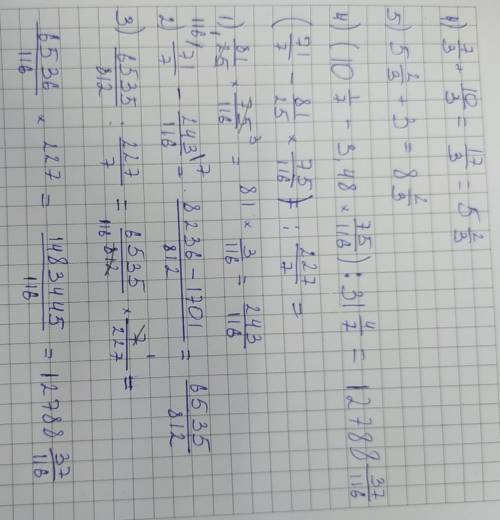 4) 7/3 + 10/3 = 17/3 = 5 2/3
5) 5 2/3 + 3 = 8 2/3
4) (10 1/7 - 3,48 × 75/116) : 31 4/7 = 12788 37/116
(71/7 - 81/25 × 75/116) : 227/7 =
1) 81/25 1 × 75/116 3 = 81 × 3/116 = 243/116
2) 116/ 71/7 - 243/116 \7 = 8236-1701/812 = 6535/812
3) 6535/812 : 227/7 = 6535/812 116 × 7/227 1 =
6536/116 × 227 = 1483445/116 = 12788 37/116